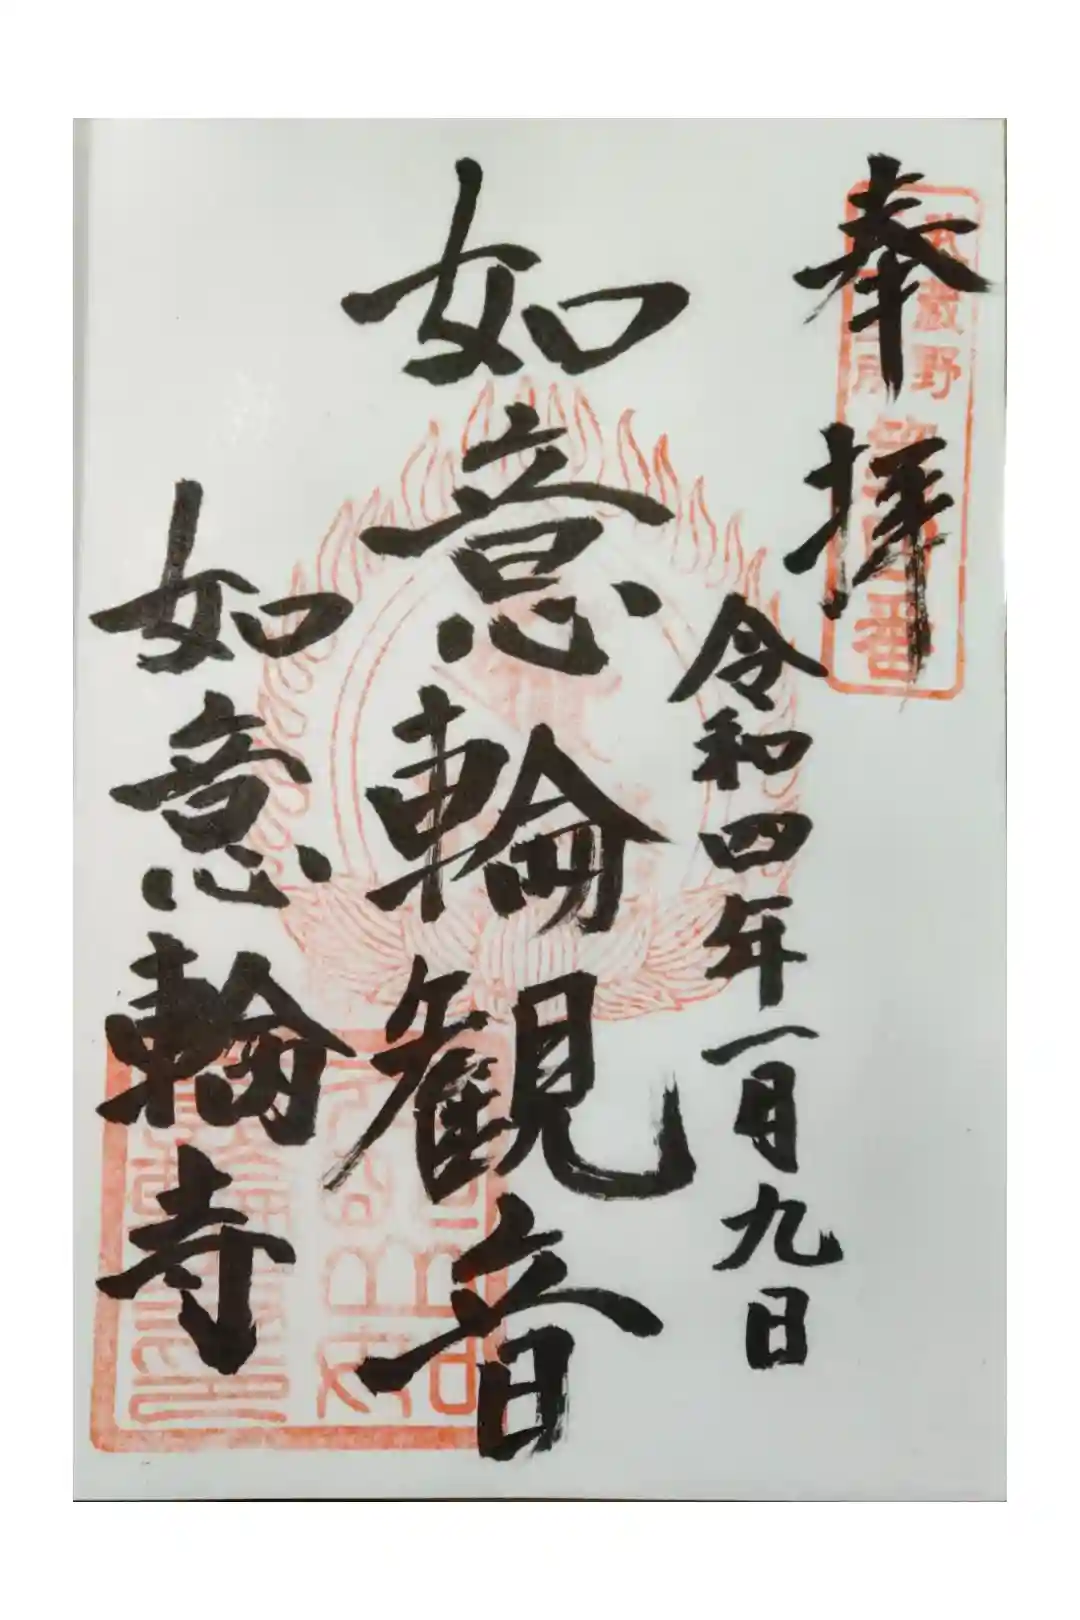 奉拝
武蔵野
番
令和四年一月九日
如意輪観音
如意輪寺